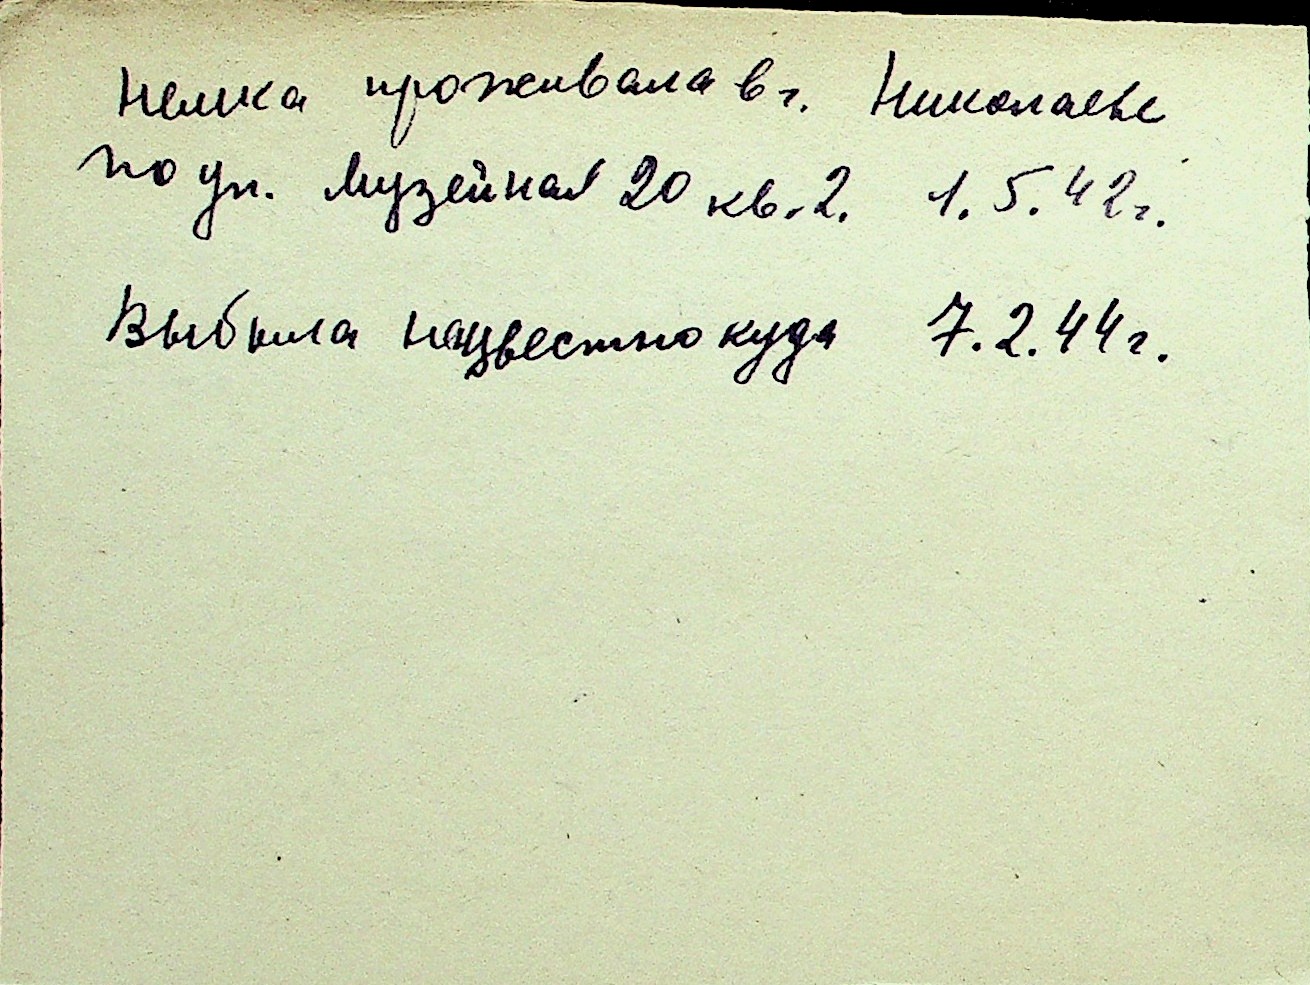 Немка проживала в г. Николаеве
по ул. Музейная 20 кв. 2. 1.5.42г.
Выбыла неизвестно куда 7.2.44г.